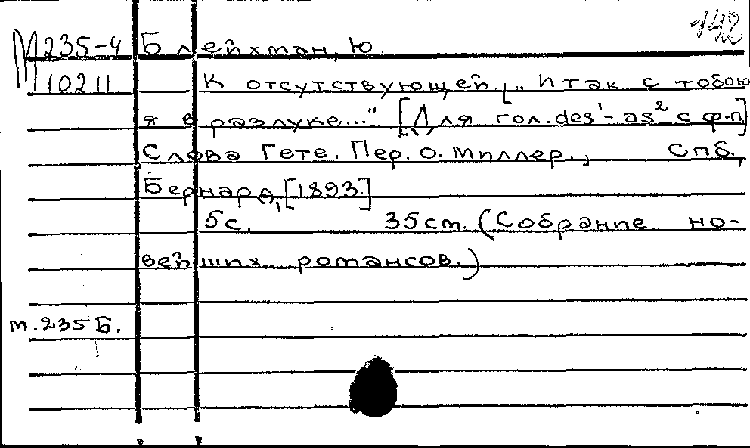 142
М 235-4 Блейхман, Ю.
10211 К отсутствующей. „Итак с тобою
я в разлуке..." [Для гол. des¹-as² с ф-п]
Слова Гете. Пер. О. Миллер., Спб.,
Бернард, [1893.]
5с. 35 см. (Собрание но-
вейших романсов.)
т. 235 Б.